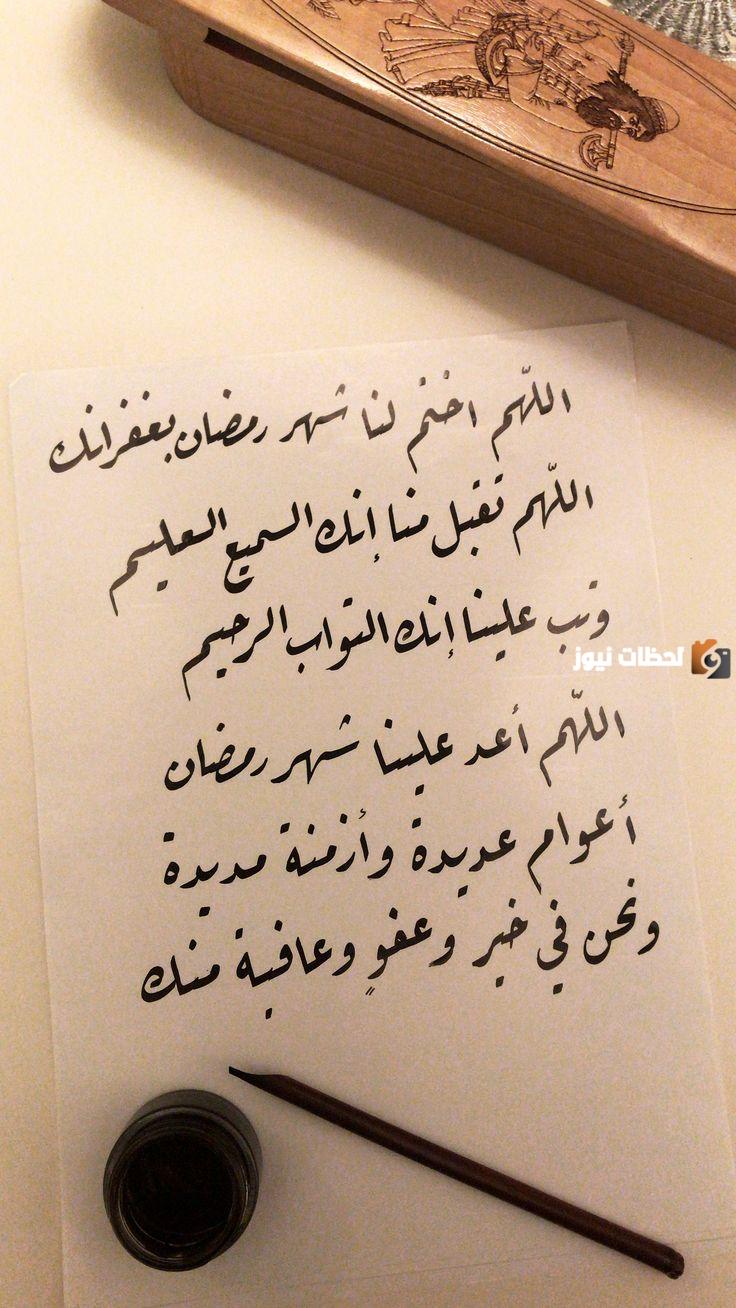 اللّهم اختم لنا شهر رمضان بغفرانك
اللّهم تقبل منا إنك السميع العليم
وتب علينا إنك التواب الرحيم
لحظات نيوز
اللّهم أعد علينا شهر رمضان
أعوام عديدة وأزمنة مديدة
ونحن في خير وعفوٍ وعافية منك